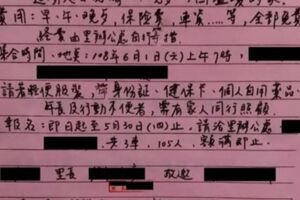 費用:早、午、晚点,保險費、車資....等,全部免費
經費由里辦公處自行籌措
集合時間、地点:108年6月1日(六)上午7時,
請著輕便服裝,攜身份証、健保卡、個人自用藥品
年長及行動不便者,需有家人同行照顧
報名:即日起至5月30日(四)止,請洽里辦公處
共3車,105人,額滿即止.
里長 敬邀